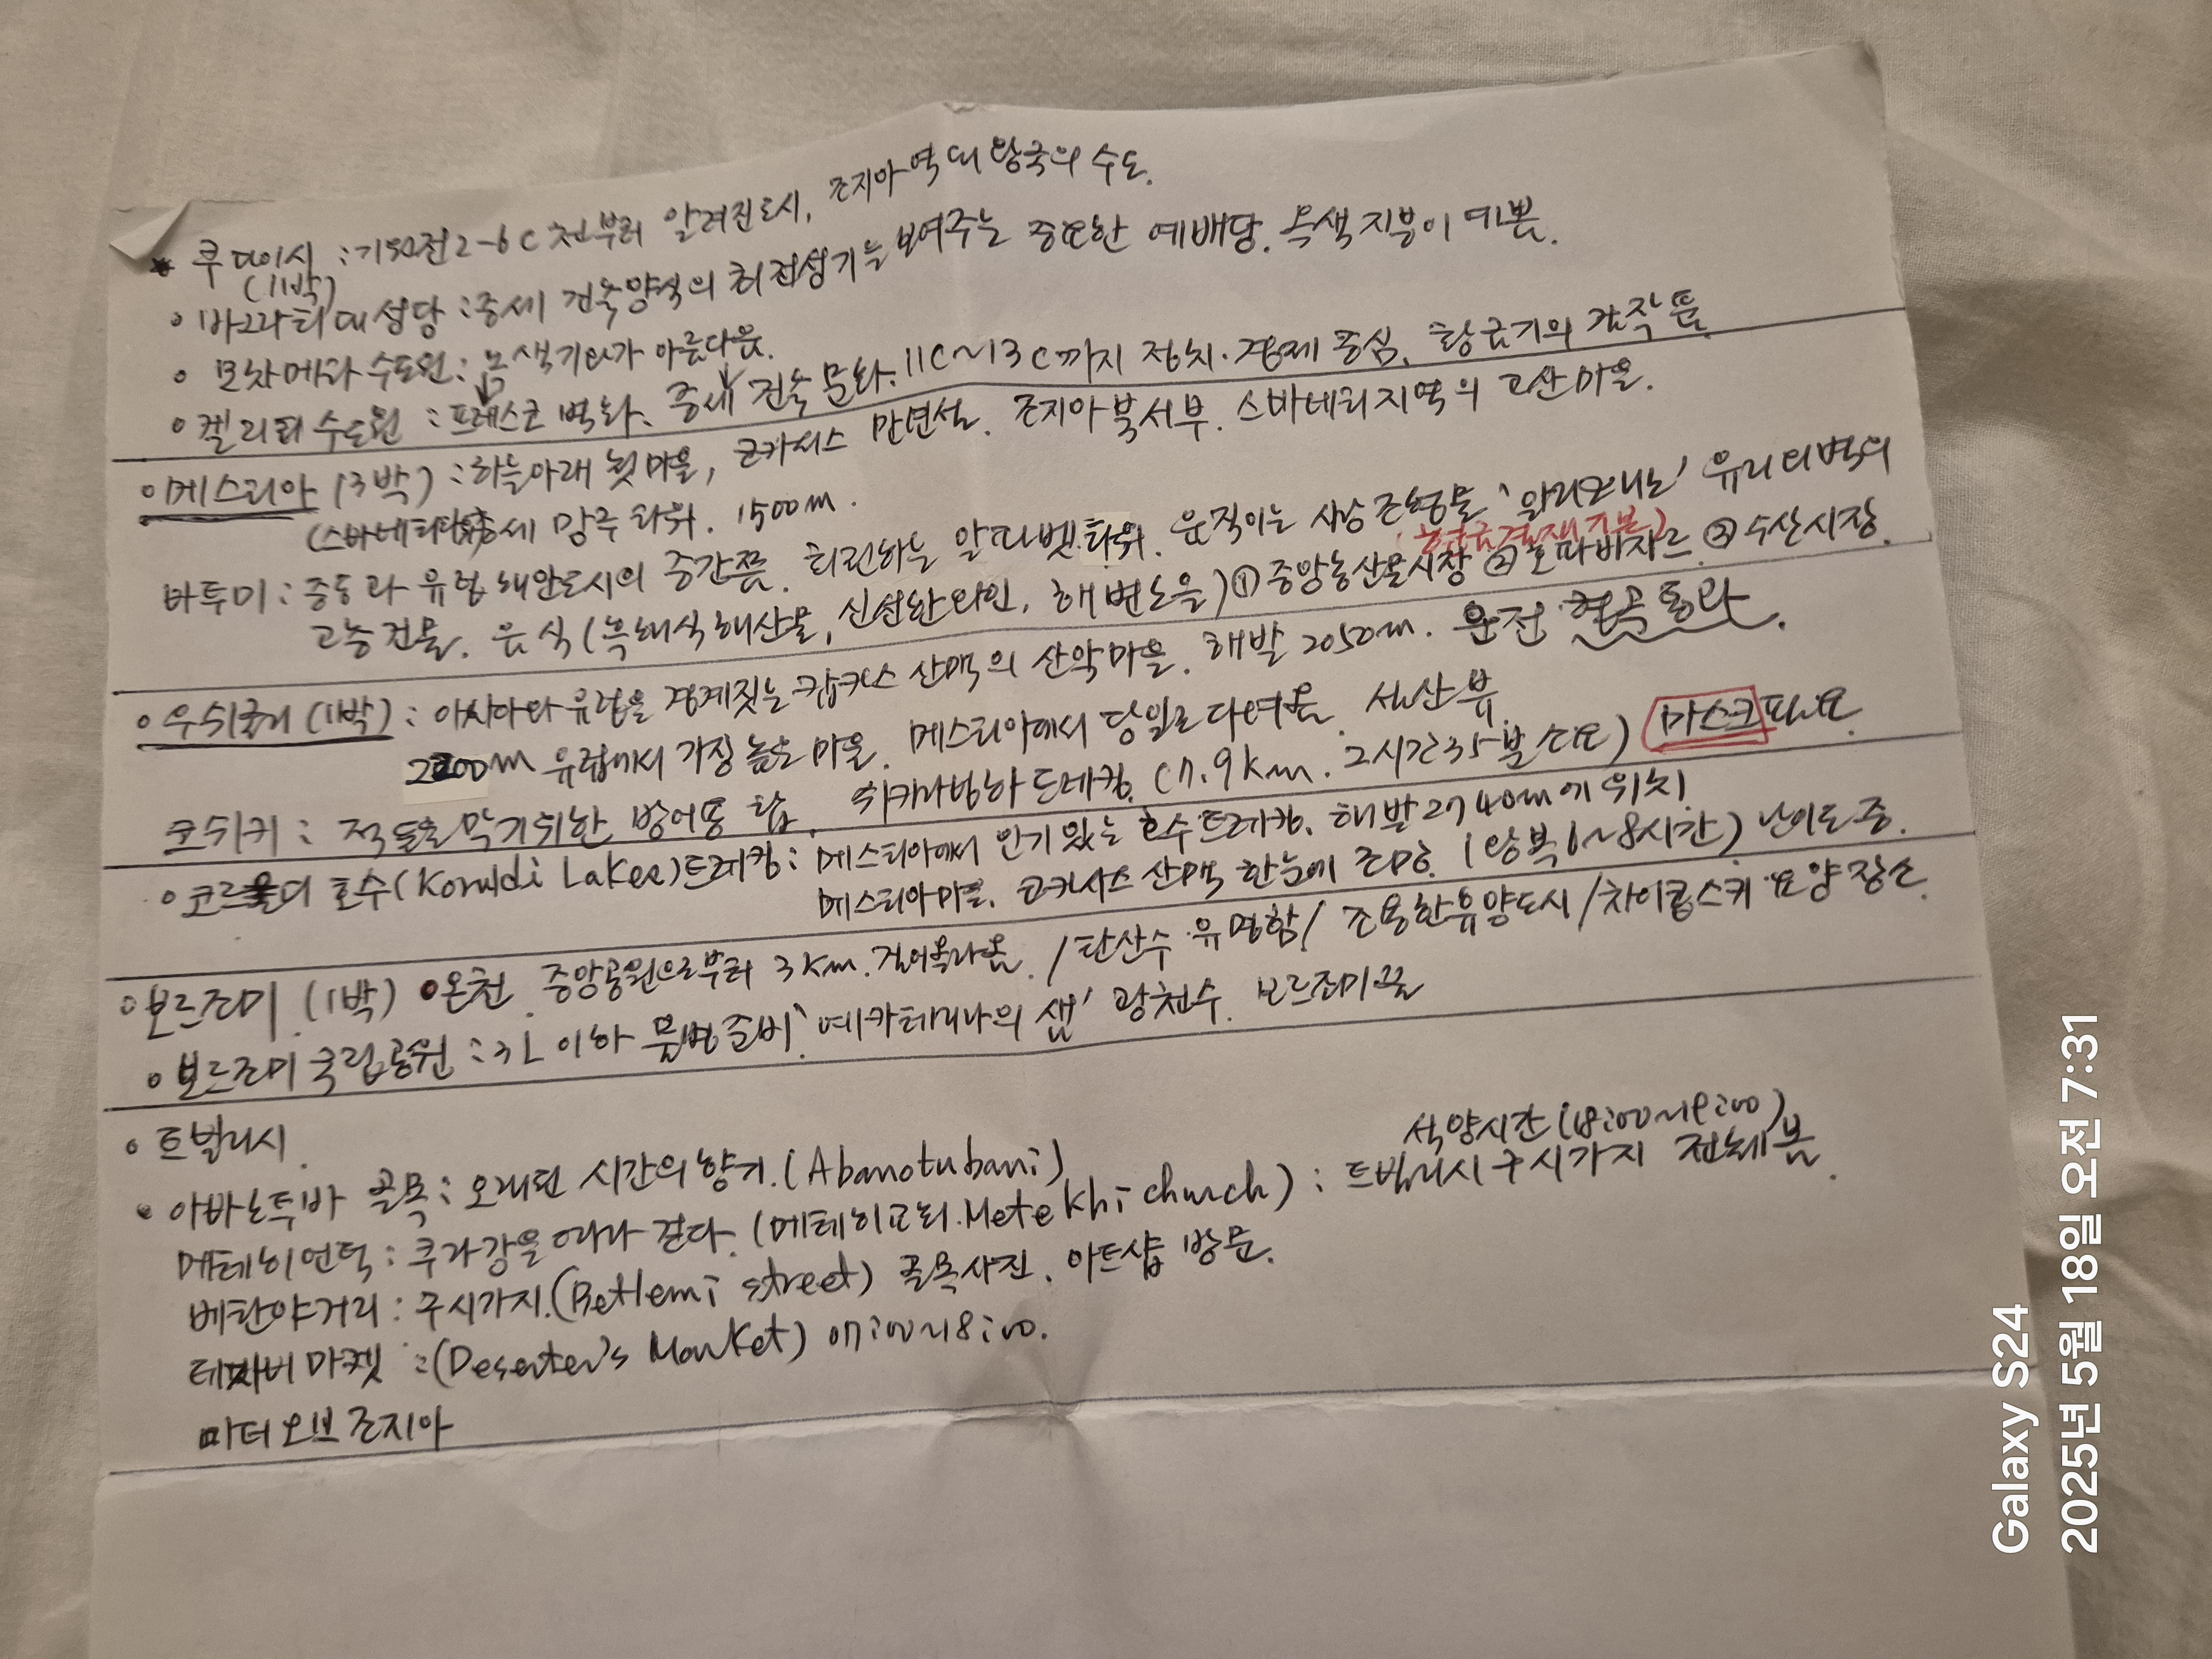 쿠타이시 : 기원전 2-6C 전부터 알려진 도시, 조지아 역대 왕국의 수도.
(1박)
• 바그라티 대성당 : 중세 건축양식의 최전성기를 보여주는 중요한 예배당. 녹색 지붕이 예쁨.
• 모차메타 수도원 : 녹색기와가 아름다움.
• 겔라티 수도원 : 프레스코 벽화. 중세 건축 문화. 11C~13C까지 정치·경제 중심. 황금기의 걸작품
• 메스티아 (3박) : 하늘아래 첫마을, 코카서스 만년설. 조지아 북서부. 스바네티지역의 고산마을.
(스바네티 중세 망루 타워. 1500m.
바투미 : 중동과 유럽 해안도시의 중간쯤. 회전하는 알파벳 타워. 움직이는 사랑 조형물 '알리와니노' 유리외벽의
고층건물. 음식 (흑해식 해산물, 신선한 와인, 해변노을) ① 중앙농산물시장 ② 호파바자르 ③ 수산시장.
• 우쉬굴리 (1박) : 아시아와 유럽을 경계짓는 캅카스 산맥의 산악마을. 해발 2050m. 운전 협곡통과.
2200m 유럽에서 가장 높은 마을. 메스티아에서 당일로 다녀옴. 설산뷰.
코쉬키 : 적들을 막기위한 방어용 탑. 쉬카라빙하 트레킹. (7.9km. 2시간35분 소요) 마스크 필요
• 코르울디 호수 (Koruldi Lakes) 트레킹 : 메스티아에서 인기있는 호수트레킹. 해발 2740m에 위치.
메스티아마을. 코카서스 산맥 한눈에 조망. (왕복 6~8시간) 난이도 중.
• 보르조미 (1박) • 온천. 중앙공원으로부터 3km. 걸어올라옴. / 탄산수 유명함 / 조용한 휴양도시 / 차이콥스키 요양장소.
• 보르조미 국립공원 : 3L 이하 물병준비. '예카테리나의 샘' 광천수. 보르조미
• 트빌리시.
석양시간 (18:00~19:00)
• 아바노투바 골목 : 오래된 시간의 향기. (Abanotubani)
메테히언덕 : 쿠라강을 따라 걷다. (메테히교회. Metekhi church) : 트빌리시 구시가지 전체봄.
베탄야거리 : 구시가지. (Betlemi street) 골목사진. 아트샵 방문.
마켓 : (Deserter's Market) 07:00~18:00.
마더 오브 조지아
Galaxy S24
2025년 5월 18일 오전 7:31